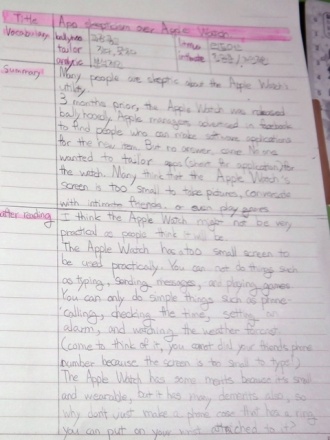 Title App skepticism over Apple Watch
Vocabulary ballyhoo
tailor intimate
Summary Many people are skeptic about the Apple Watch's
utility.
3 months prior, the Apple Watch was released
ballyhooedly. Apple managers advertised in
to find people who can make new applications
for the new item. But no answer came. No one
wanted to tailor apps (short for application) for
the watch. Many think that the Apple Watch's
screen is too small to take pictures,
with intimate friends, or even play games
after reading I think the Apple Watch might not be very
practical as people think it will be.
The Apple Watch has too small screen to
be used practically. You can not do things such
as typing, sending messages, and playing games
You can only do simple things such as phone-
calling, checking the time, setting a
alarm, and watching the weather forcast.
(come to think of it, you cannot dial your friends phone
number because the screen is too small to type!)
The Apple Watch has some merits because it's small
and wearable, but it has many demerits also, so
why don't just make a phone case that has a ring
you can put on your wrist attached to it?